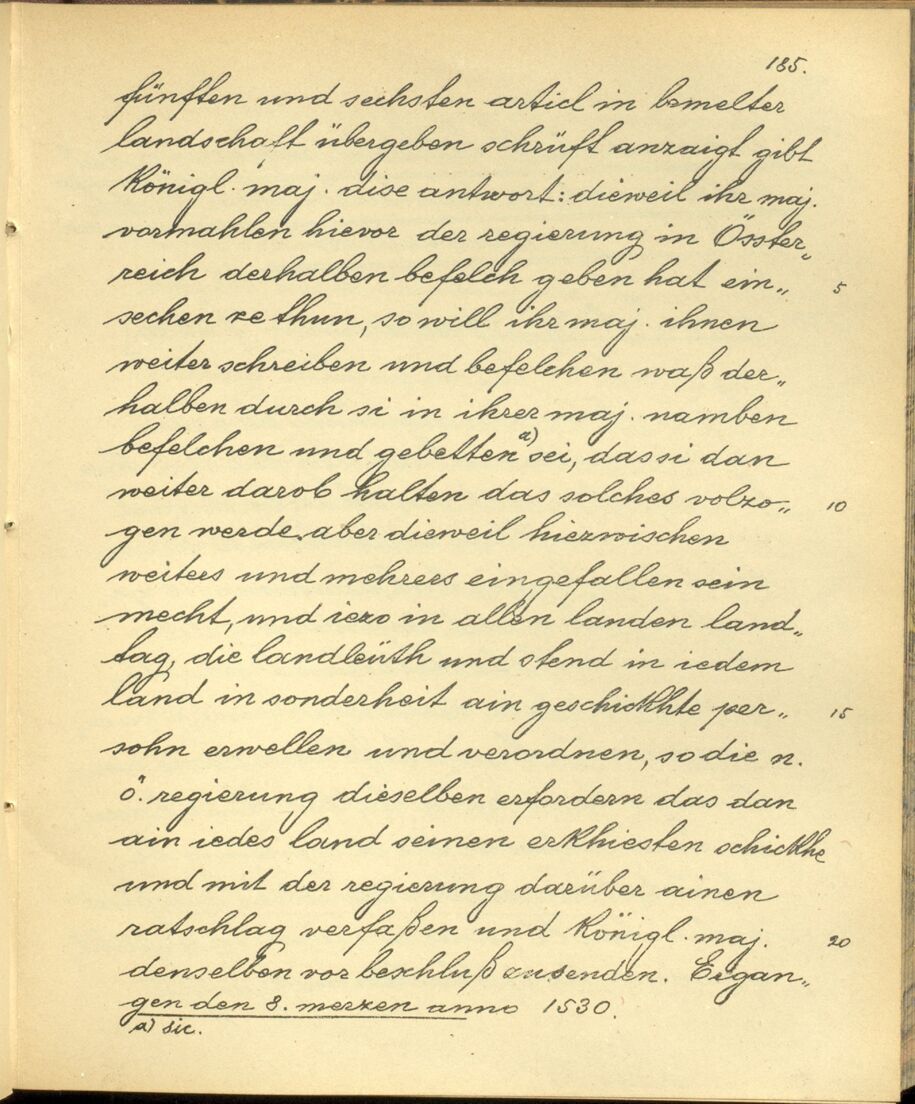 185.
fünften und sechsten articl in bemelter
landschaft übergeben schrüft anzaigt gibt
Königl. maj. dise antwort: dieweil ihr maj.
vormahlen hievor der regierung inÖsster„
reich derhalben befelch geben hat ein„ 5
sechen ze thun, so will ihr maj. ihnen
weiter schreiben und befelchen waß der„
halben durch si in ihrer maj. namben
befelchen und gebetten a) sei, das si dan
weiter darob halten das solches volzo„ 10
gen werde. aber dieweil hiezwischen
weiters und mehrers eingefallen sein
mecht, und iezo in allen landen land„
tag, die landleüth und stend in iedem
land in sonderheit ain geschickhte per„ 15
sohn erwellen und verordnen, so die n.
ö. regierung dieselben erfordern das dan
ain iedes land seinen erkhiesten schickhe
und mit der regierung darüber ainen
ratschlag verfaßen und Königl. maj. 20
denselben vor beschluß zusenden. Ergan„
gen den 8. merzen anno 1530.
a) sic.